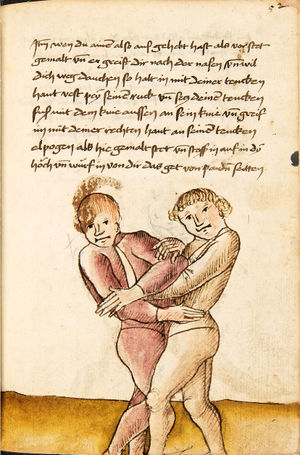 52
Itm̄ wen du ainē also auf gehebt hast als vor stet
gemalt vn̄ er greift dir nach der nasen vn̄ wil
dich weg dauchen so halt in mit deiner tencken
hant vest pey seinē ruck vn̄ secz deinē tencken
fuß mit dem knie aussen an sein knie vn̄ greif
im mit deiner rechten hant an seinē tencken
elpogen als hie gemalt stet vn̄ in auf in die
höch vn̄ würf in von dir das get von paiden seitten